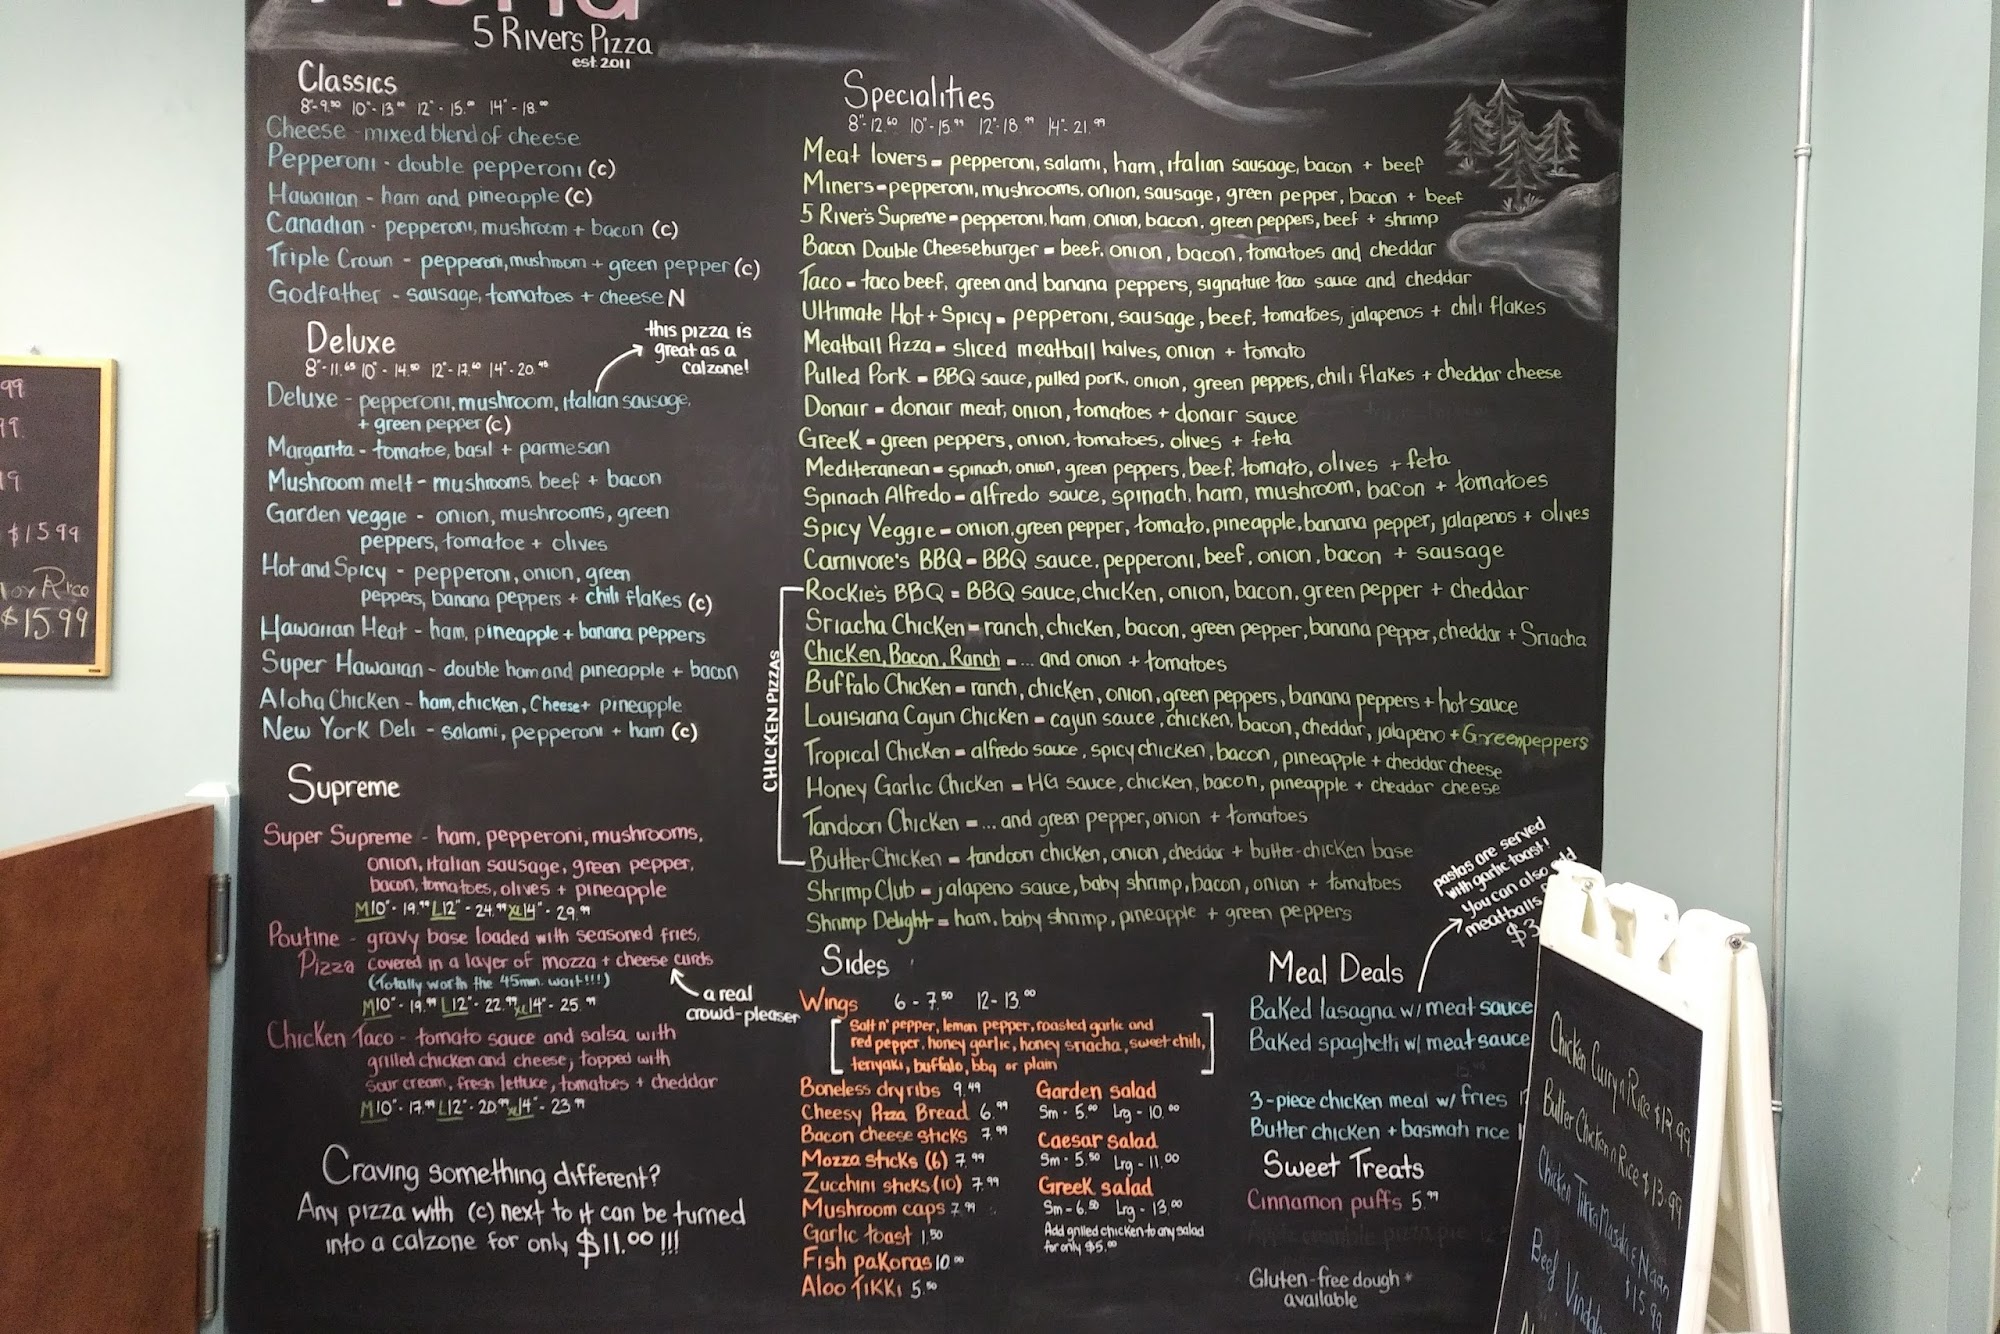 5 Rivers Pizza
est. 2011
Classics
8"-9.50 10"-13.00 12"-15.00 14"-18.00
Cheese - mixed blend of cheese
Pepperoni - double pepperoni (c)
Hawaiian - ham and pineapple (c)
Canadian - pepperoni, mushroom + bacon (c)
Triple Crown - pepperoni, mushroom + green pepper (c)
Godfather - sausage, tomatoes + cheese N
this pizza is
great as a
calzone!
Deluxe
8"-11.65 10"-14.50 12"-17.60 14"-20.45
Deluxe - pepperoni, mushroom, italian sausage,
+ green pepper (c)
Margarita - tomatoe, basil + parmesan
Mushroom melt - mushrooms, beef + bacon
Garden veggie - onion, mushrooms, green
peppers, tomatoe + olives
Hot and Spicy - pepperoni, onion, green
peppers, banana peppers + chili flakes (c)
Hawaiian Heat - ham, pineapple + banana peppers
Super Hawaiian - double ham and pineapple + bacon
Aloha Chicken - ham, chicken, Cheese + pineapple
New York Deli - salami, pepperoni + ham (c)
Supreme
Super Supreme - ham, pepperoni, mushrooms,
onion, italian sausage, green pepper,
bacon, tomatoes, olives + pineapple
M10"-19.99 L12"-24.99 XL14"-29.99
Poutine - gravy base loaded with seasoned fries,
Pizza covered in a layer of mozza + cheese curds
(Totally worth the 45min. wait!!!)
M10"-19.99 L12"-22.99 XL14"-25.99
a real
crowd-pleaser
Chicken Taco - tomato sauce and salsa with
grilled chicken and cheese, topped with
sour cream, fresh lettuce, tomatoes + cheddar
M10"-17.99 L12"-20.99 XL14"-23.99
Craving something different?
Any pizza with (c) next to it can be turned
into a calzone for only $11.00 !!!
Specialities
8"-12.60 10"-15.99 12"-18.99 14"-21.99
Meat lovers - pepperoni, salami, ham, italian sausage, bacon + beef
Miners - pepperoni, mushrooms, onion, sausage, green pepper, bacon + beef
5 River's Supreme - pepperoni, ham, onion, bacon, green peppers, beef + shrimp
Bacon Double Cheeseburger - beef, onion, bacon, tomatoes and cheddar
Taco - taco beef, green and banana peppers, signature taco sauce and cheddar
Ultimate Hot + Spicy - pepperoni, sausage, beef, tomatoes, jalapenos + chili flakes
Meatball Pizza - sliced meatball halves, onion + tomato
Pulled Pork - BBQ sauce, pulled pork, onion, green peppers, chili flakes + cheddar cheese
Donair - donair meat, onion, tomatoes + donair sauce
Greek - green peppers, onion, tomatoes, olives + feta
Mediteranean - spinach, onion, green peppers, beef, tomato, olives + feta
Spinach Alfredo - alfredo sauce, spinach, ham, mushroom, bacon + tomatoes
Spicy Veggie - onion, green pepper, tomato, pineapple, banana pepper, jalapenos + olives
Carnivore's BBQ - BBQ sauce, pepperoni, beef, onion, bacon + sausage
CHICKEN PIZZAS
Rockie's BBQ - BBQ sauce, chicken, onion, bacon, green pepper + cheddar
Sriacha Chicken - ranch, chicken, bacon, green pepper, banana pepper, cheddar + Sriacha
Chicken, Bacon, Ranch - ... and onion + tomatoes
Buffalo Chicken - ranch, chicken, onion, green peppers, banana peppers + hot sauce
Louisiana Cajun Chicken - cajun sauce, chicken, bacon, cheddar, jalapeno + Greenpeppers
Tropical Chicken - alfredo sauce, spicy chicken, bacon, pineapple + cheddar cheese
Honey Garlic Chicken - HG sauce, chicken, bacon, pineapple + cheddar cheese
Tandoori Chicken - ... and green pepper, onion + tomatoes
Butter Chicken - tandoori chicken, onion, cheddar + butter-chicken base
Shrimp Club - jalapeno sauce, baby shrimp, bacon, onion + tomatoes
Shrimp Delight - ham, baby shrimp, pineapple + green peppers
Sides
Wings 6-7.50 12-13.00
Salt n' pepper, lemon pepper, roasted garlic and
red pepper, honey garlic, honey sriacha, sweet chili,
teriyaki, buffalo, bbq or plain
Boneless dry ribs 9.49
Cheesy Pizza Bread 6.99
Bacon cheese sticks 7.99
Mozza sticks (6) 7.99
Zucchini sticks (10) 7.99
Mushroom caps 7.99
Garlic toast 1.50
Fish pakoras 10.00
Aloo Tikki 5.50
Garden salad
Sm - 5.00 Lrg - 10.00
Caesar salad
Sm - 5.50 Lrg - 11.00
Greek salad
Sm - 6.50 Lrg - 13.00
Add grilled chicken to any salad
for only $5.00
pastas are served
with garlic toast!
You can also add
meatballs
$3
Meal Deals
Baked lasagna w/ meat sauce
Baked spaghetti w/ meat sauce
3-piece chicken meal w/ fries
Butter chicken + basmati rice
Sweet Treats
Cinnamon puffs 5.99
Gluten-free dough *
available
Chicken Curry n Rice $12.99
Butter Chicken n Rice $13.99
Chicken Tikka Masala & Naan
$15.99
Beef Vindaloo
99
$15.99
Rice
$15.99